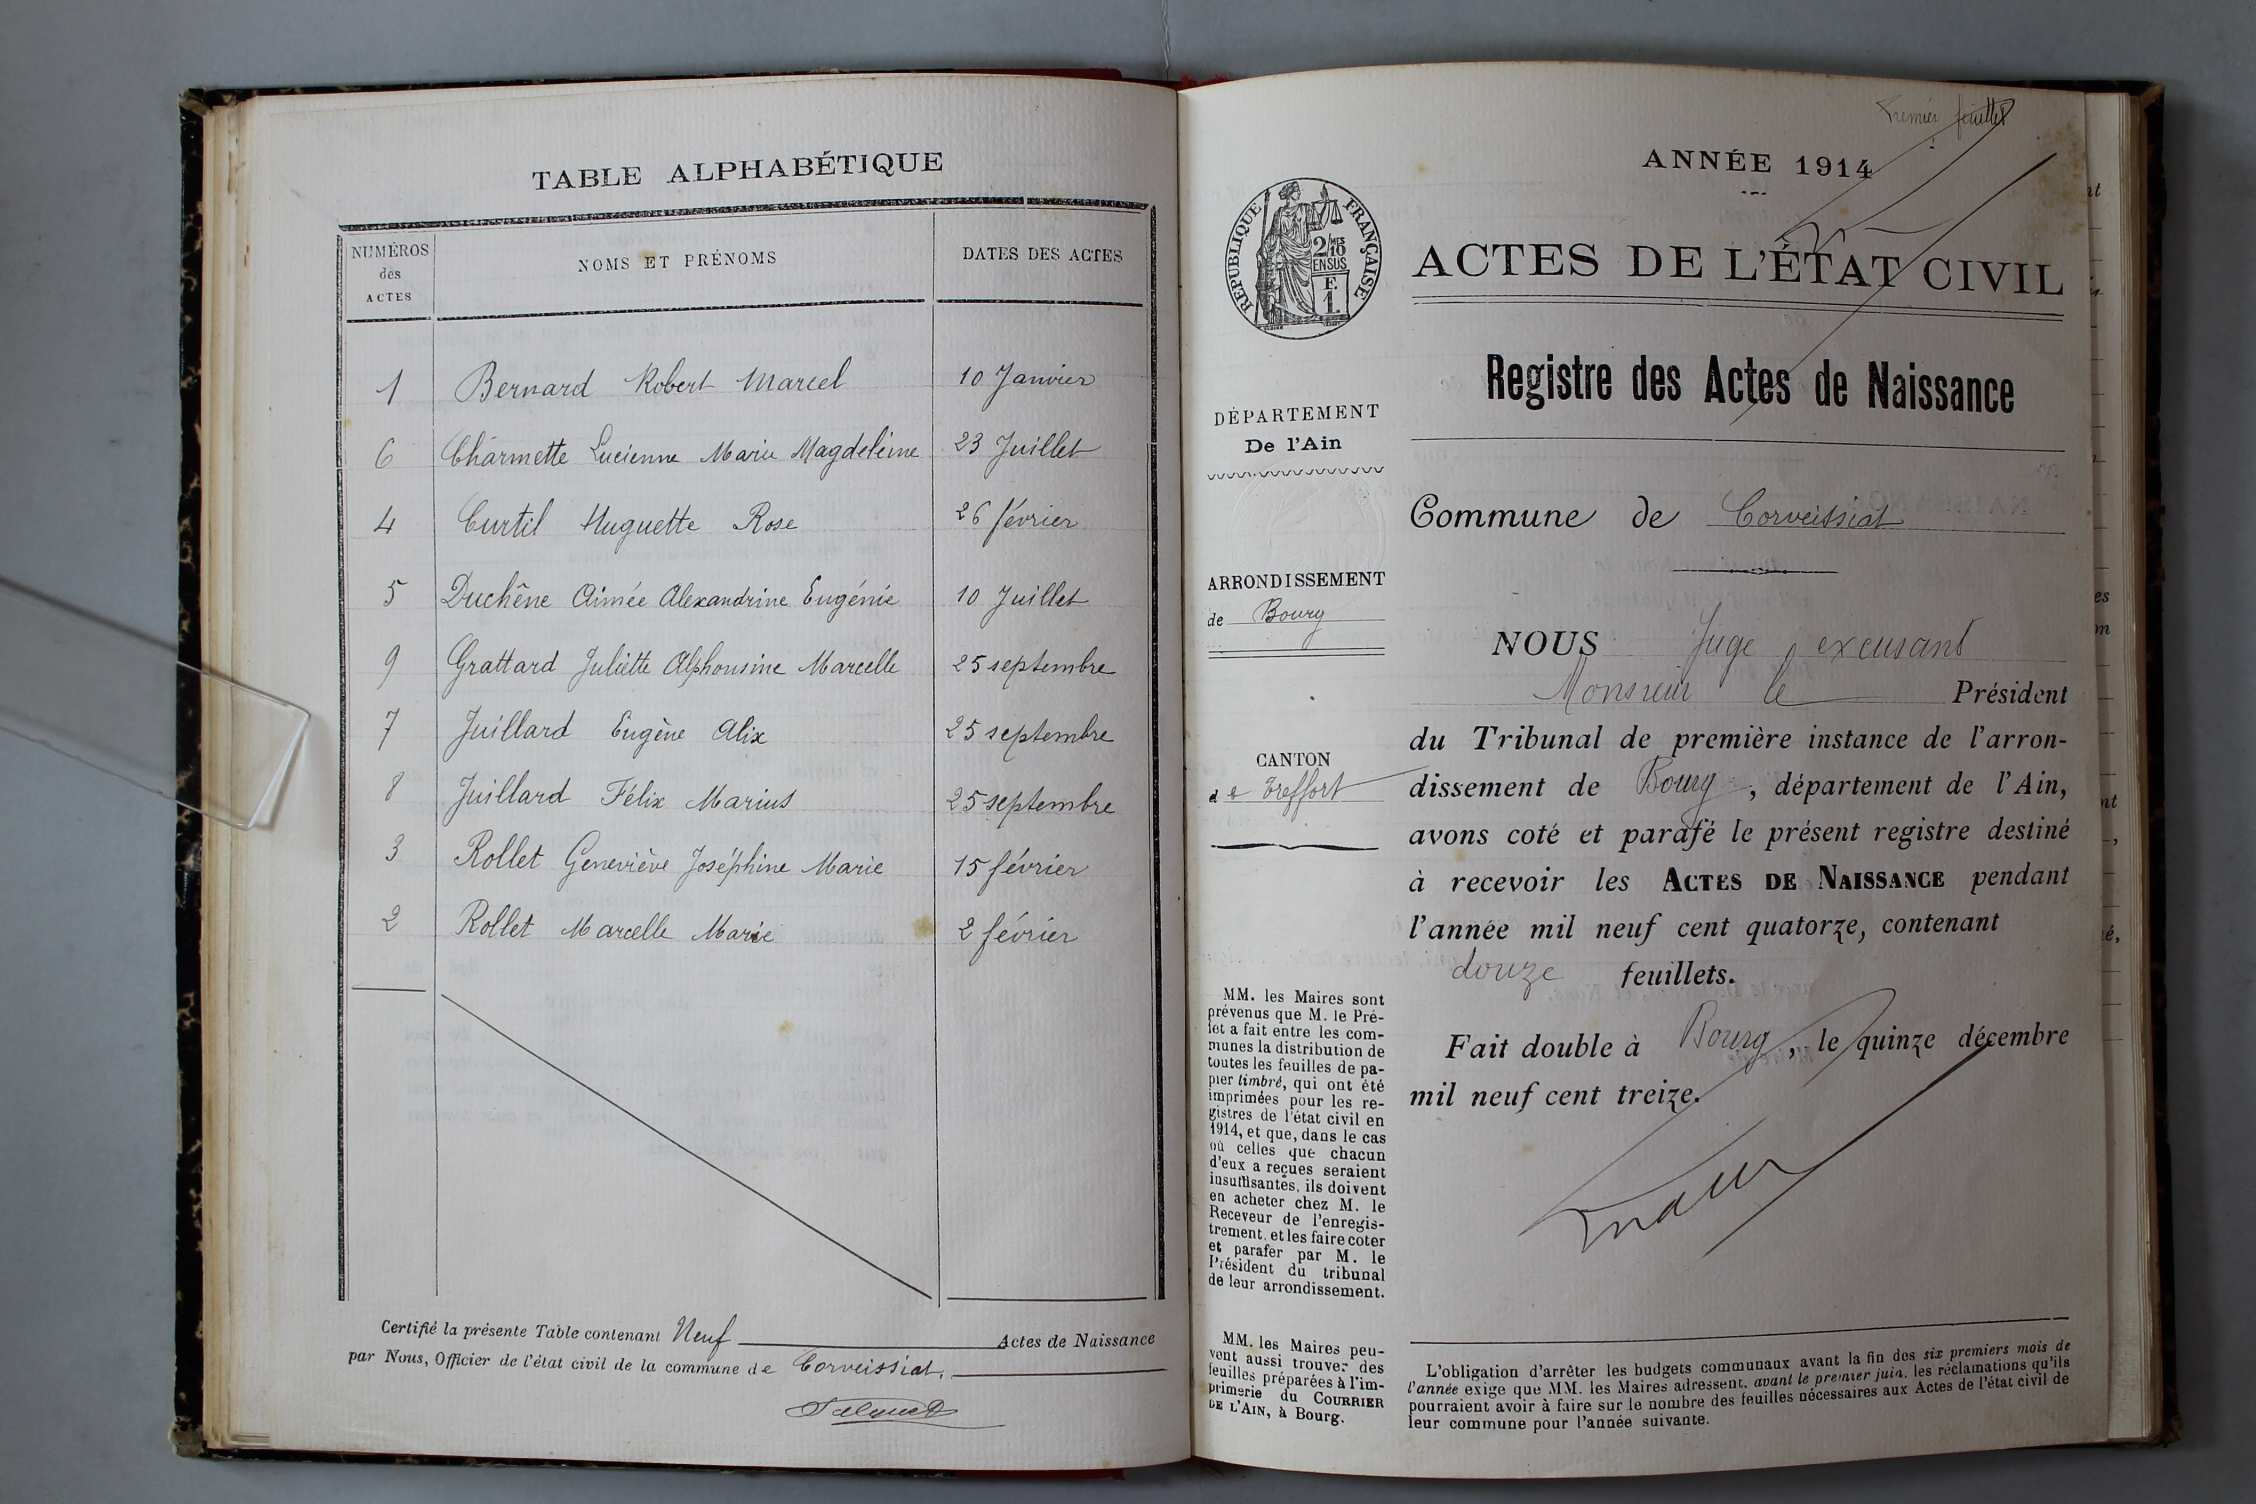 TABLE ALPHABÉTIQUE
NUMÉROS des ACTES
NOMS ET PRÉNOMS
DATES DES ACTES
1 Bernard Robert Marcel 10 Janvier
6 Charmette Lucienne Marie Magdeleine 23 Juillet
4 Curtil Huguette Rose 26 février
5 Duchêne Aimée Alexandrine Eugénie 10 Juillet
9 Grattard Juliette Alphonsine Marcelle 25 septembre
7 Juillard Eugène Alix 25 septembre
8 Juillard Félix Marius 25 septembre
3 Rollet Geneviève Joséphine Marie 15 février
2 Rollet Marcelle Marie 2 février
Certifié la présente Table contenant Neuf Actes de Naissance
par Nous, Officier de l'état civil de la commune de Corveissiat.
Premier feuillet
ANNÉE 1914
RÉPUBLIQUE FRANÇAISE
2/10 MES
EN SUS
F.
1.
ACTES DE L'ÉTAT CIVIL
Registre des Actes de Naissance
DÉPARTEMENT
De l'Ain
Commune de Corveissiat
ARRONDISSEMENT
de Bourg
CANTON
de Treffort
NOUS Juge excusant
Monsieur le Président
du Tribunal de première instance de l'arron-
dissement de Bourg, département de l'Ain,
avons coté et parafé le présent registre destiné
à recevoir les ACTES DE NAISSANCE pendant
l'année mil neuf cent quatorze, contenant
douze feuillets.
Fait double à Bourg, le quinze décembre
mil neuf cent treize.
MM. les Maires sont
prévenus que M. le Pré-
fet a fait entre les com-
munes la distribution de
toutes les feuilles de pa-
pier timbré, qui ont été
imprimées pour les re-
gistres de l'état civil en
1914, et que, dans le cas
où celles que chacun
d'eux a reçues seraient
insuffisantes, ils doivent
en acheter chez M. le
Receveur de l'enregis-
trement, et les faire coter
et parafer par M. le
Président du tribunal
de leur arrondissement.
MM. les Maires peu-
vent aussi trouver des
feuilles préparées à l'im-
primerie du COURRIER
DE L'AIN, à Bourg.
L'obligation d'arrêter les budgets communaux avant la fin des six premiers mois de
l'année exige que MM. les Maires adressent, avant le premier juin, les réclamations qu'ils
pourraient avoir à faire sur le nombre des feuilles nécessaires aux Actes de l'état civil de
leur commune pour l'année suivante.